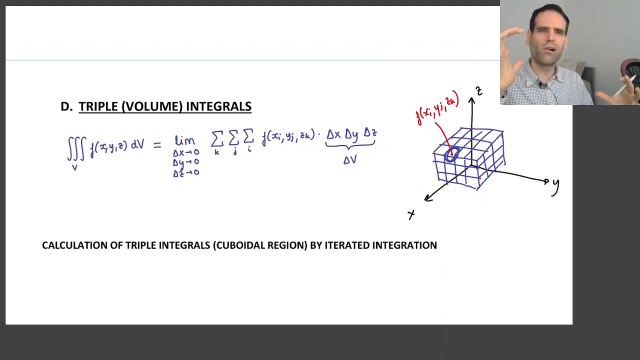 D. TRIPLE (VOLUME) INTEGRALS
∭_V f(x,y,z) dV = lim_{Δx→0, Δy→0, Δz→0} Σ_k Σ_j Σ_i f(xi, yj, zk) · Δx Δy Δz
ΔV
f(xi, yj, zk)
z
y
x
CALCULATION OF TRIPLE INTEGRALS (CUBOIDAL REGION) BY ITERATED INTEGRATION